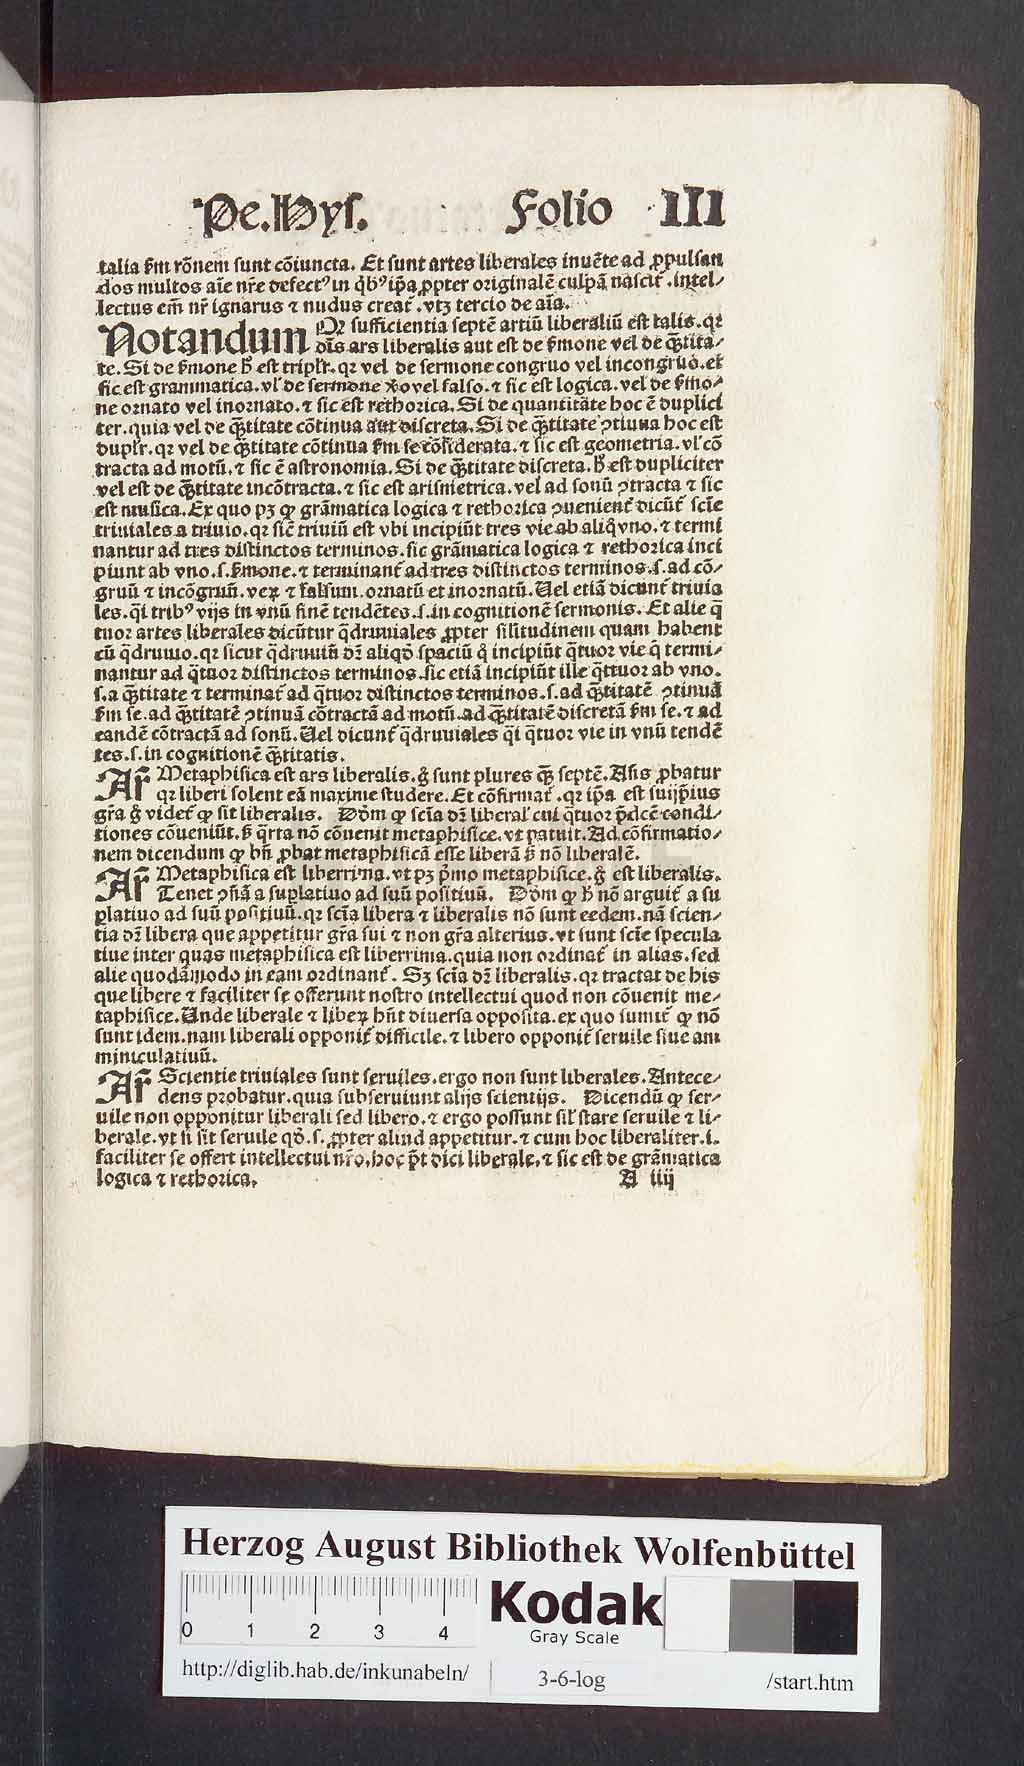 Pe.Hys. Folio III
talia ẜm rõnem sunt cõiuncta. Et sunt artes liberales inuẽte ad ꝓpulsan
dos multos aĩe nr̃e defectꝰ in qb̾ꝰ ip̃a ꝓpter originalẽ culpã nascit᷑. intel⸗
lectus em̃ nr̃ ignarus ⁊ nudus creat᷑. vtꝫ tercio de aĩa.
Notandum Qꝛ sufficientia septẽ artiũ liberaliũ est talis. qꝛ
oĩs ars liberalis aut est de ẜmone vel de q̃ꝫtita⸗
te. Si de ẜmone h̾ est triplr̃. qꝛ vel de sermone congruo vel incongruo. et
sic est grammatica. vl̾ de sermone v̾o vel falso. ⁊ sic est logica. vel de ẜmo⸗
ne ornato vel inornato. ⁊ sic est rethorica. Si de quantitate hoc ẽ duplici
ter. quia vel de q̃ꝫtitate cõtinua aut discreta. Si de q̃ꝫtitate ꝯtinua hoc est
duplr̃. qꝛ vel de q̃ꝫtitate cõtinua ẜm se cõsiderata. ⁊ sic est geometria. vl̾ cõ
tracta ad motũ. ⁊ sic ẽ astronomia. Si de q̃ꝫtitate discreta. h̾ est dupliciter
vel est de q̃ꝫtitate incõtracta. ⁊ sic est arismetrica. vel ad sonũ ꝯtracta ⁊ sic
est musica. Ex quo pꝫ ꝙ grãmatica logica ⁊ rethorica ꝯuenient᷑ dicũt᷑ scĩe
triuiales a triuio. qꝛ sic̃ triuiũ est vbi incipiũt tres vie ab aliq̾ vno. ⁊ termi
nantur ad tres distinctos terminos. sic grãmatica logica ⁊ rethorica inci
piunt ab vno .s. ẜmone. ⁊ terminant᷑ ad tres distinctos terminos .s. ad cõ⸗
gruũ ⁊ incõgruũ. veꝝ ⁊ falsum. ornatũ et inornatũ. Uel etiã dicunt᷑ triuia
les. q̃i tribꝰ vijs in vnũ finẽ tendẽtes .s. in cognitionẽ sermonis. Et alie q̃
tuor artes liberales dicũtur q̃druuiales ꝓpter sil̾itudinem quam habent
cũ q̃druuio. qꝛ sicut q̃druuiũ dꝛ̃ aliqð spaciũ q̾ incipiũt q̃tuor vie q̃ termi⸗
nantur ad q̃tuor distinctos terminos. sic etiã incipiũt ille q̃ttuor ab vno.
.s. a q̃ꝫtitate ⁊ terminat᷑ ad q̃tuor distinctos terminos .s. ad q̃ꝫtitatẽ ꝯtinuã
ẜm se. ad q̃ꝫtitatẽ ꝯtinuã cõtractã ad motũ. ad q̃ꝫtitatẽ discretã ẜm se. ⁊ ad
eandẽ cõtractã ad sonũ. Uel dicunt᷑ q̃druuiales q̃i q̃tuor vie in vnũ tendẽ
tes .s. in cognitionẽ q̃ꝫtitatis.
Ar̃ Metaphisica est ars liberalis. g̾ sunt plures q̃ꝫ septẽ. Aſis ꝓbatur
qꝛ liberi solent eã maxime studere. Et cõfirmat᷑. qꝛ ip̃a est suijp̃ius
gr̃a g̾ videt᷑ ꝙ sit liberalis. Dõm ꝙ scĩa dꝛ̃ liberal̾ cui q̃tuor p̃dcẽ condi⸗
tiones cõueniũt. ẜ q̃rta nõ cõuenit metaphisice. vt patuit. Ad cõfirmatio⸗
nem dicendum ꝙ bñ ꝓbat metaphisicã esse liberã ẜ nõ liberalẽ.
Ar̃ Metaphisica est liberrima. vt pꝫ p̾mo metaphisice. g̾ est liberalis.
Tenet ꝯñã a suꝑlatiuo ad suũ positiuũ. Dõm ꝙ h̾ nõ arguit᷑ a su
ꝑlatiuo ad suũ positiuũ. qꝛ scĩa libera ⁊ liberalis nõ sunt eedem. nã scien⸗
tia dꝛ̃ libera que appetitur gr̃a sui ⁊ non gr̃a alterius. vt sunt scĩe specula
tiue inter quas metaphisica est liberrima. quia non ordinat᷑ in alias. sed
alie quodãmodo in eam ordinant᷑. Sꝫ scĩa dꝛ̃ liberalis. qꝛ tractat de his
que libere ⁊ faciliter se offerunt nostro intellectui quod non cõuenit me⸗
taphisice. Unde liberale ⁊ libeꝝ hñt diuersa opposita. ex quo sumit᷑ ꝙ nõ
sunt idem. nam liberali opponit᷑ difficile. ⁊ libero opponit᷑ seruile siue am
miniculatiuũ.
Ar̃ Scientie triuiales sunt seruiles. ergo non sunt liberales. Antece⸗
dens probatur. quia subseruiunt alijs scientijs. Dicendũ ꝙ ser⸗
uile non opponitur liberali sed libero. ⁊ ergo possunt sil̾ stare seruile ⁊ li⸗
berale. vt si sit seruile qð .s. ꝓpter aliud appetitur. ⁊ cum hoc liberaliter .i.
faciliter se offert intellectui nr̃o. hoc p̃t dici liberale. ⁊ sic est de grãmatica
logica ⁊ rethorica.
A iiij
Herzog August Bibliothek Wolfenbüttel
0 1 2 3 4
Kodak
Gray Scale
http://diglib.hab.de/inkunabeln/ 3-6-log /start.htm